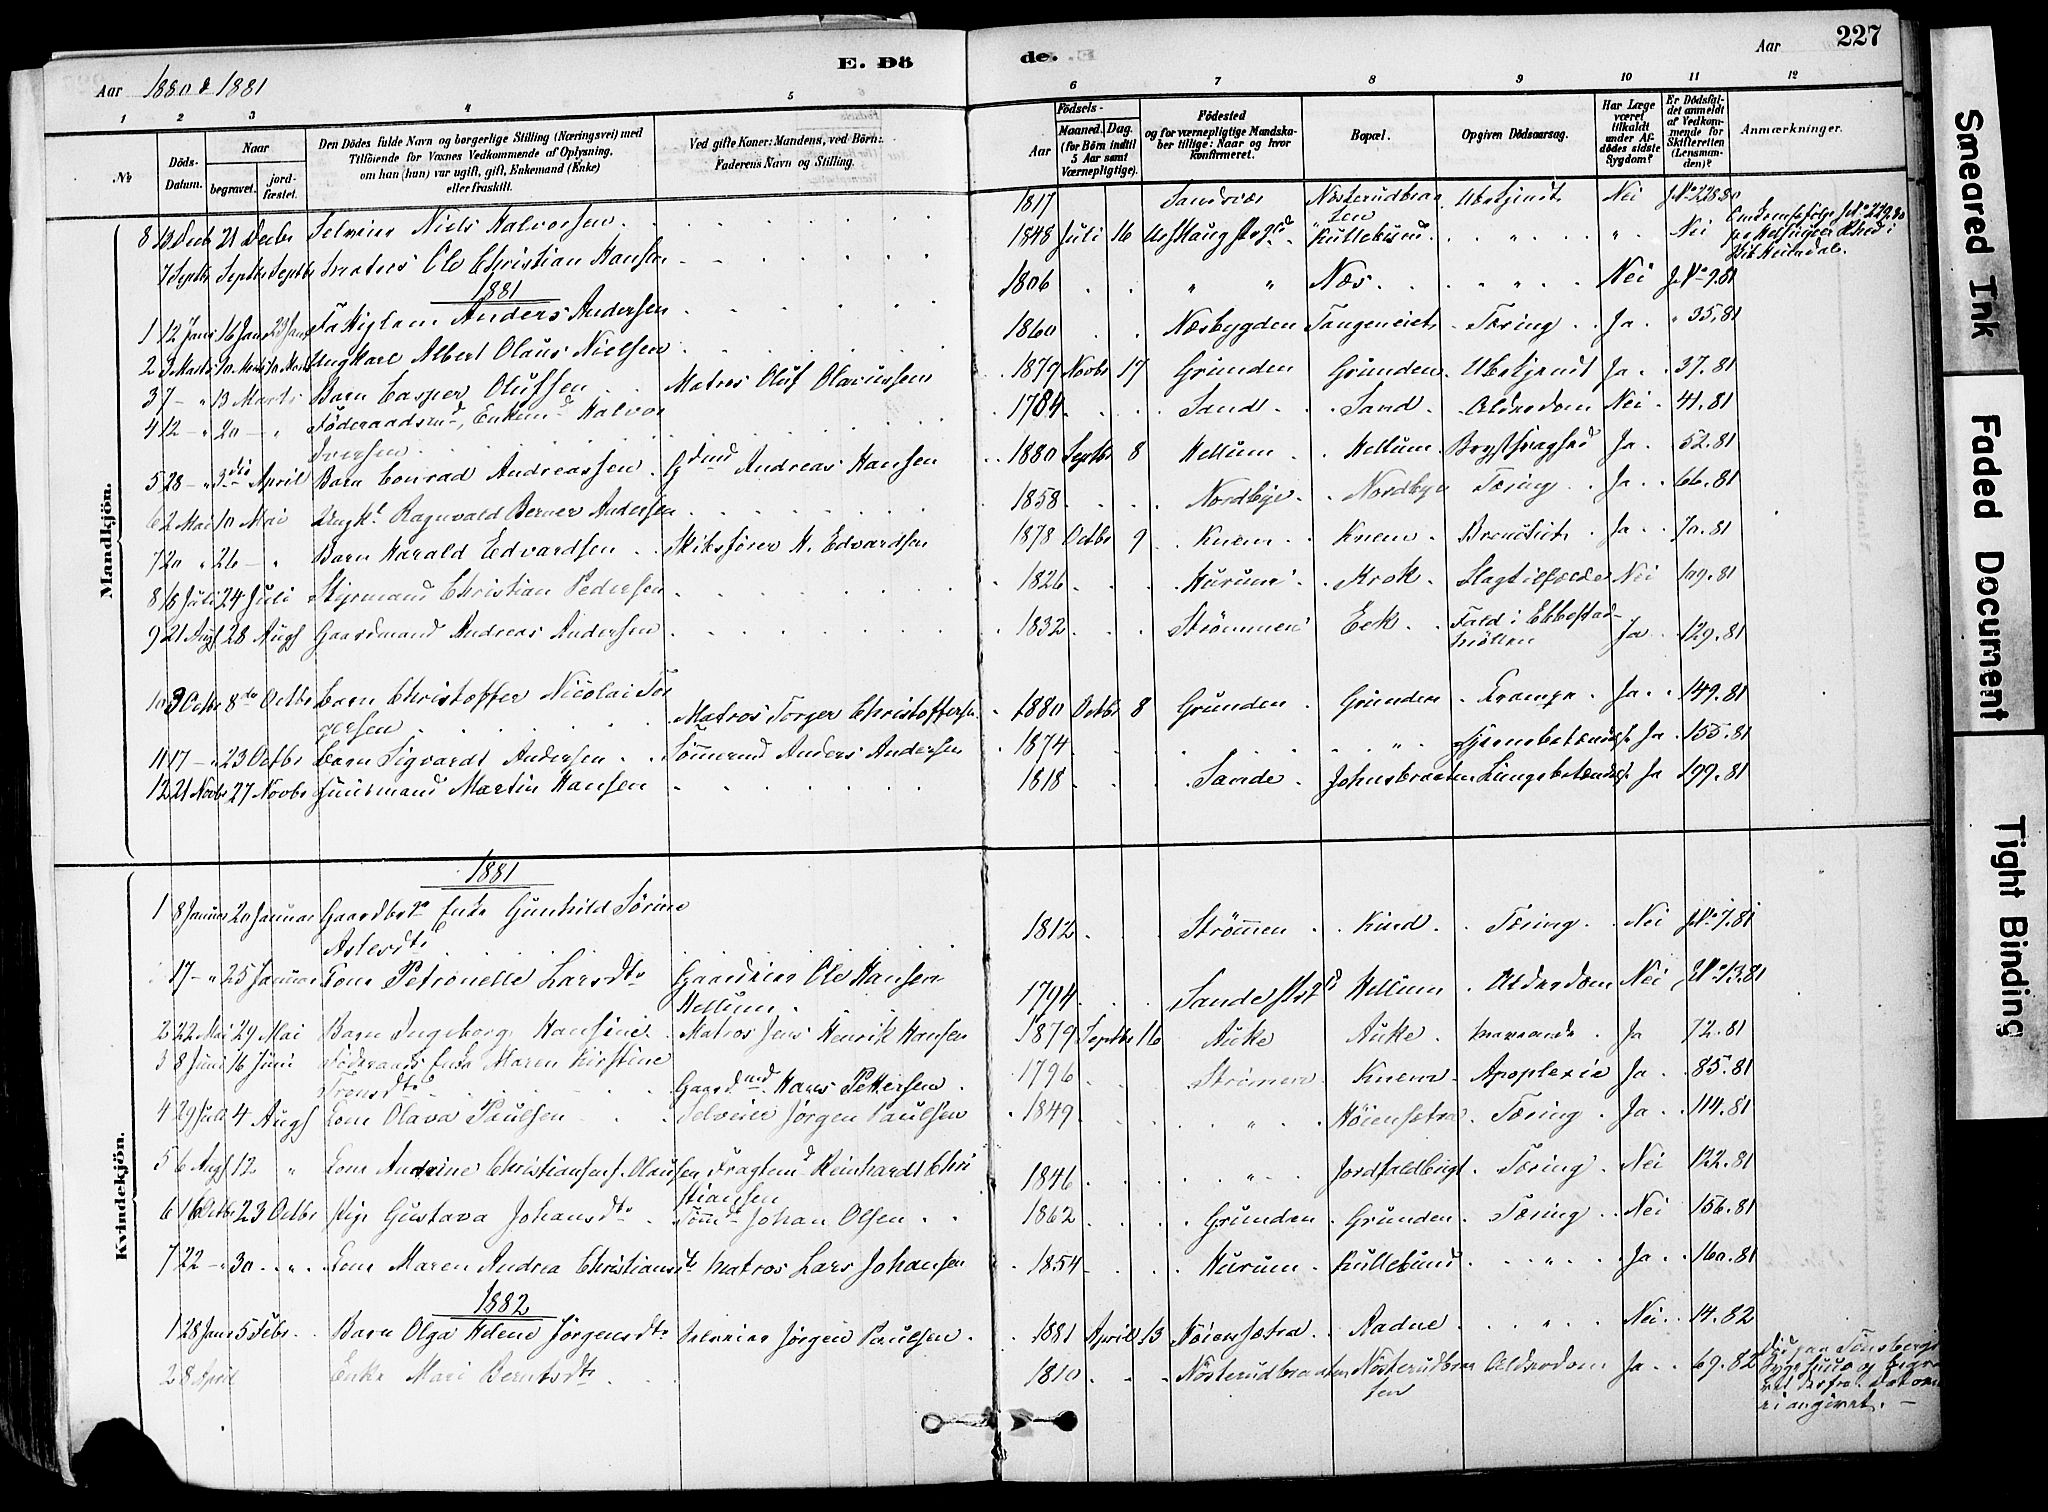 Aar 1880 & 1881
E. Dö
de.
Aar
227
1 2 3 4 5 6 7 8 9 10 11 12
№
Döds-Datum.
Naar
begravet. jord-fæstet.
Den Dödes fulde Navn og borgerlige Stilling (Næringsvei) med
Tilföiende for Voxnes Vedkommende af Oplysning,
om han (hun) var ugift, gift, Enkemand (Enke)
eller fraskilt.
Ved gifte Koner: Mandens, ved Börn:
Faderens Navn og Stilling.
Födsels-
Aar Maaned. Dag.
(for Börn indtil
5 Aar samt
Værnepligtige).
Födested
og for værnepligtige Mandskaber tillige: Naar og hvor
konfirmeret.
Bopæl.
Opgiven Dödsaarsag.
Har Læge
været
tilkaldt
under Afdödes sidste
Sygdom?
Er Dödsfaldet anmeldt
af Vedkommende for
Skifteretten
(Lensmanden)?
Anmærkninger.
Mandkjön.
8 13 Decb 21 Decbr Selveier Niels Halvorsen 1817 Sandsvær Nösterudbraaten Ubekjendt Nei J.№ 228.80
7 Septbr Septbr Septbr Matros Ole Christian Hansen 1848 Juli 16 Kullebund " " Nei
1881
1 12 Janr 16 Jan 23 Jan Fattiglem Anders Andersen 1806 " " Næs " Nei J.№ 9.81
2 3 Marts 10 Marts 10 Marts Ungkarl Albert Olaus Nielsen 1860 Næsbygden Tangeneiet Tæring Ja " 35.81
3 7 - " 13 Marts Barn Casper Olufsen Matros Oluf Olavussen 1879 Novbr 17 Grunden Grunden Ubekjendt Ja 37.81
4 12 - " 20 - " Föderaadsmd, Enkemd Halvor
Iversen 1784 Sand Sand Alderdom Nei 41.81
5 28 - " 3die April Barn Conrad Andreassen Gdmd Andreas Hansen 1880 Septbr 8 Hellum Hellum Brystsvaghed Ja 52.81
6 2 Mai 10 Mai Ungkl Ragnvald Berner Andersen 1858 Nordbye Nordbye Tæring Ja 66.81
7 20 " 26 - " Barn Harald Edvardsen Skibsförer H. Edvardsen 1878 Octbr 9 Knem Knem Bronchit Ja 70.81
8 18 Juli 24 Juli Styrmand Christian Pedersen 1826 Hurum Krok Slagtilfælde Nei 109.81
9 21 Aug 28 Aug Gaardmand Andreas Andersen 1832 Strömmen Eek Fald i Ebbestad-
möllen Ja 129.81
10 3 Octbr 8de Octbr Barn Christoffer Nicolai Tor
gersen Matros Torger Christoffersen 1880 Octbr 8 Grunden Grunden Krampe Ja 149.81
11 17 - " 23 Octbr Barn Sigvardt Andersen Tömmermd Anders Andersen 1874 " Hjernebetændelse Ja 155.81
12 21 Novbr 27 Novbr Huusmand Martin Hansen 1818 Sande Johnsbraaten Lungebetændelse Ja 199.81
Kvindekjön.
1881
1 8 Januar 20 Januar Gaardbr Enke Gunhild Sörine
Aslesdtr 1812 Strömmen Kind Tæring Nei J№ 7.81
17 - " 25 Januar Kone Petronelle Larsdtr Gaardeier Ole Hansen
Hellum 1794 Sande Hellum Alderdom Nei J.№ 13.81
2 22 Mai 29 Mai Barn Ingeborg Hansine Matros Jens Henrik Hansen 1879 Septbr 16 Auke Auke Ja 72.81
3 8 Juni 16 Juni Föderaads Enke Maren Kirstine
Tronsdtr Gaardmd Hans Pettersen 1796 Strömmen Knem Apoplexie Ja 85.81
4 29 Juli 4 Aug Kone Olava Paulsen Selveier Jörgen Paulsen 1849 " Höiensetra Tæring Ja 114.81
5 6 Aug 12 " Kone Andrine Christiansen f. Olausen Fragtemd Reinhardt Chri
stiansen 1846 " Jordfaldbrigt Tæring Nei 122.81
6 16 Octbr 23 Octbr Pige Gustava Johansdtr Tömmd Johan Olsen 1862 Grunden Grunden Tæring Nei 156.81
7 22 - " 30 " Kone Maren Andrea Christiansdtr Matros Lars Johansen 1854 Hurum Kullebund " Ja 160.81
1882
1 28 Janr 5 Febr Barn Olga Helene Jörgensdtr Selveier Jörgen Paulsen 1881 April 13 Höiensætra Aadne " Nei 14.82
2 8 April Enke Mari Berntsdtr 1810 Nösterudbraaten Nösterudbraa
ten Alderdom Ja 69.82 Död paa Tönsbergs
Sygehuus og begra
vet derfra. Datoen
ei angivet.
Smeared Ink
Faded Document
Tight Binding